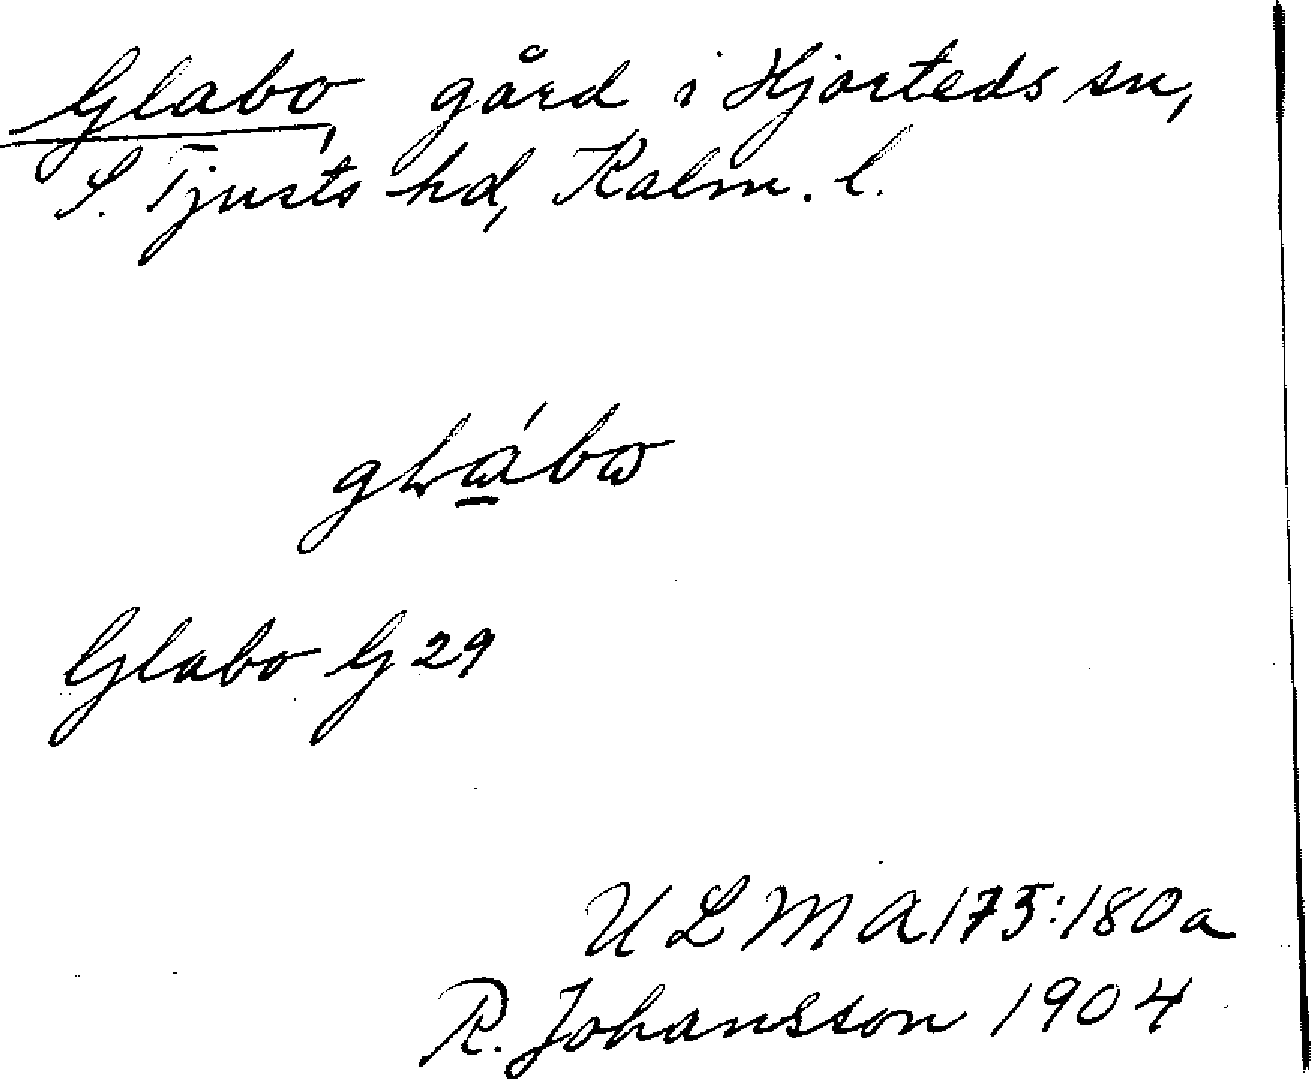 Glabo, gård i Hjorteds sn,
S. Tjusts hd, Kalm. l.
glábo
Glabo G 29
ULMA 175:180a
R. Johansson 1904